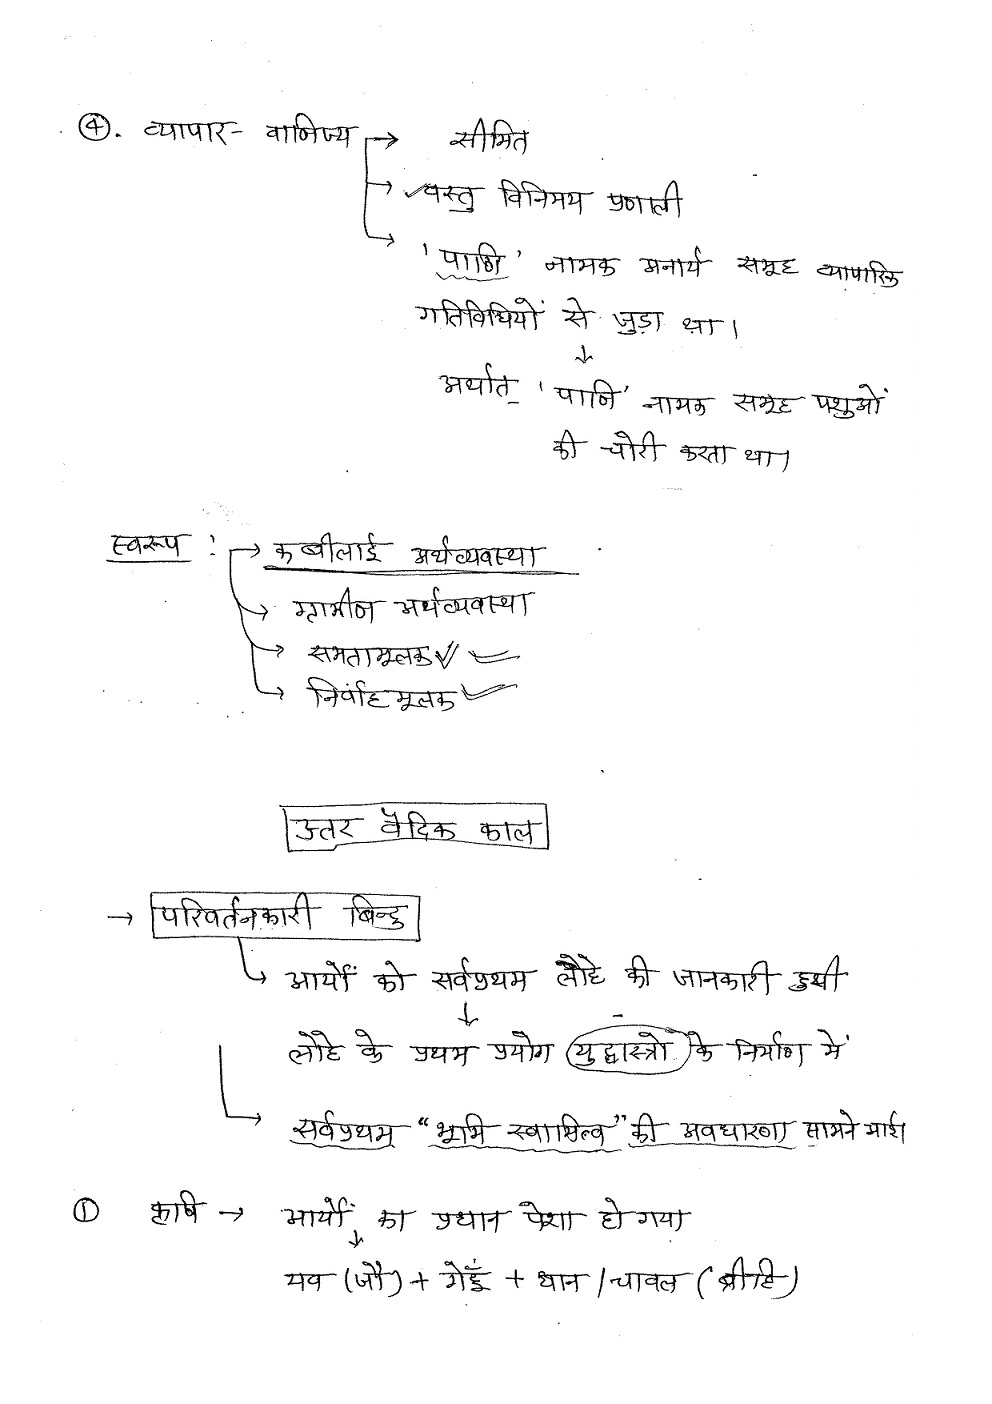 ④. व्यापार - वाणिज्य → सीमित
→ वस्तु विनिमय प्रणाली
→ 'पाणि' नामक अनार्य समूह व्यापारिक
गतिविधियों से जुड़ा था।
↓
अर्थात् 'पाणि' नामक समूह पशुओं
की चोरी करता था।
स्वरूप : → कबीलाई अर्थव्यवस्था
→ ग्रामीण अर्थव्यवस्था
→ समतामूलक ✓
→ निर्वाहमूलक ✓
उत्तर वैदिक काल
→ परिवर्तनकारी बिन्दु
→ आर्यों को सर्वप्रथम लौहे की जानकारी हुयी
↓
लौहे के प्रथम प्रयोग युद्धास्त्रों के निर्माण में
→ सर्वप्रथम "भूमि स्वामित्व" की अवधारणा सामने आई।
① कृषि → आर्यों का प्रधान पेशा हो गया
↓
यव (जौ) + गेहूँ + धान / चावल (ब्रीहि)